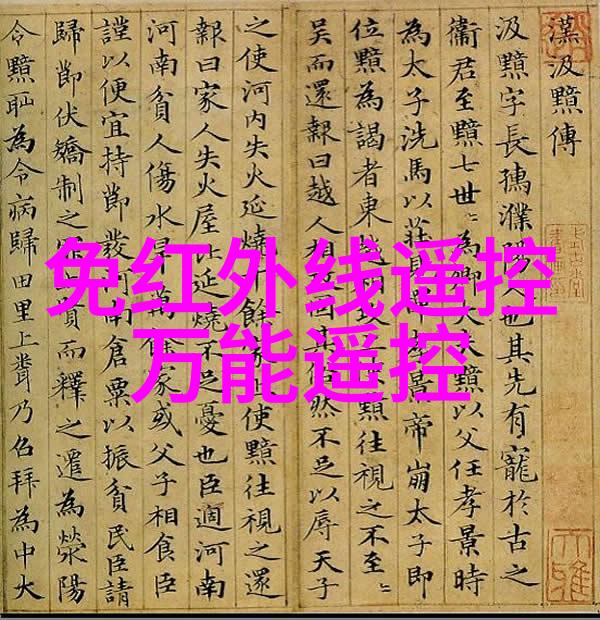 漢汲黯傳
汲黯字長孺濮陽人也其先有寵於古之
衞君至黯七世〻為卿大夫黯以父任孝景時
為太子洗馬以莊見孝景帝崩太子即
位黯為謁者東越相攻上黯往視之不至〻
吳而還報曰越人相攻固其俗然不足以辱天子
之使河内失火延燒千餘家上使黯往視之還
報曰家人失火屋比延燒不足憂也臣過河南
河南貧人傷水旱萬餘家或父子相食臣
謹以便宜持節發河南倉粟以振貧民臣請
歸節伏矯制之罪上賢而釋之遷為滎陽
令黯恥為令病歸田里上聞乃召拜為中大
免红外线遥控
万能遥控